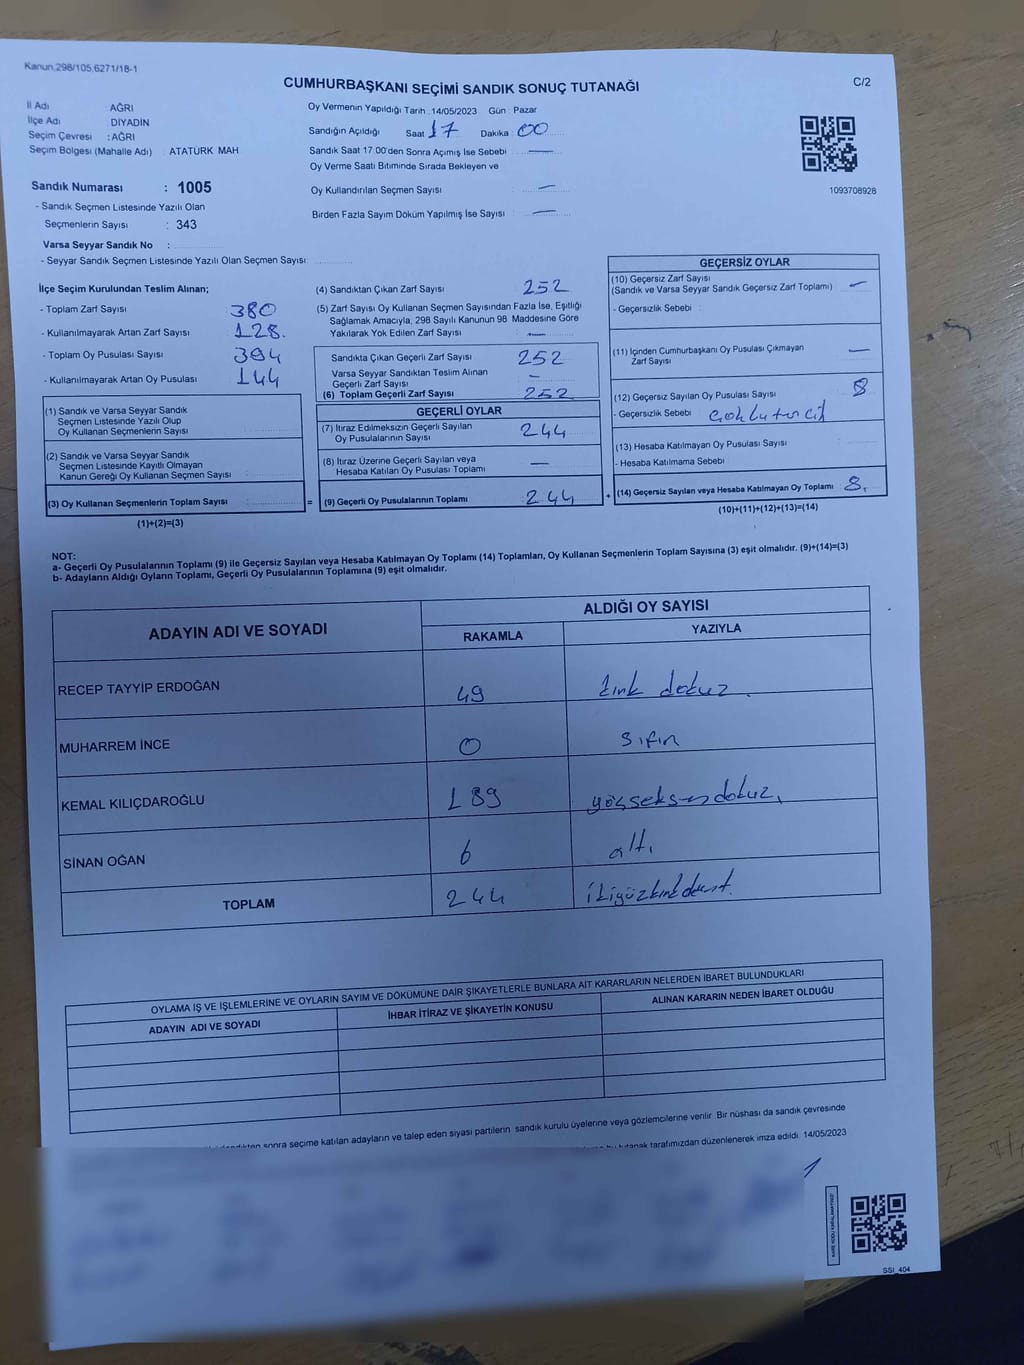 Kanun,298/105,6271/18-1
CUMHURBAŞKANI SEÇİMİ SANDIK SONUÇ TUTANAĞI
C/2
İl Adı : AĞRI
İlçe Adı : DİYADİN
Seçim Çevresi : AĞRI
Seçim Bölgesi (Mahalle Adı) : ATATÜRK MAH.
Oy Vermenin Yapıldığı Tarih : 14/05/2023 Gün : Pazar
Sandığın Açıldığı Saat 17 Dakika : 00
Sandık Saat 17:00'den Sonra Açımış İse Sebebi : —
Oy Verme Saati Bitiminde Sırada Bekleyen ve
Oy Kullandırılan Seçmen Sayısı : —
Birden Fazla Sayım Döküm Yapılmış İse Sayısı : —
1093708928
Sandık Numarası : 1005
- Sandık Seçmen Listesinde Yazılı Olan
Seçmenlerin Sayısı : 343
Varsa Seyyar Sandık No :
- Seyyar Sandık Seçmen Listesinde Yazılı Olan Seçmen Sayısı:
İlçe Seçim Kurulundan Teslim Alınan;
- Toplam Zarf Sayısı 380
- Kullanılmayarak Artan Zarf Sayısı : 128.
- Toplam Oy Pusulası Sayısı : 394
- Kullanılmayarak Artan Oy Pusulası : 144
(1) Sandık ve Varsa Seyyar Sandık
Seçmen Listesinde Yazılı Olup
Oy Kullanan Seçmenlerin Sayısı :
(2) Sandık ve Varsa Seyyar Sandık
Seçmen Listesinde Kayıtlı Olmayan
Kanun Gereği Oy Kullanan Seçmen Sayısı :
(3) Oy Kullanan Seçmenlerin Toplam Sayısı : =
(1)+(2)=(3)
(4) Sandıktan Çıkan Zarf Sayısı : 252
(5) Zarf Sayısı Oy Kullanan Seçmen Sayısından Fazla İse, Eşitliği
Sağlamak Amacıyla, 298 Sayılı Kanunun 98. Maddesine Göre
Yakılarak Yok Edilen Zarf Sayısı : —
Sandıkta Çıkan Geçerli Zarf Sayısı : 252
Varsa Seyyar Sandıktan Teslim Alınan
Geçerli Zarf Sayısı : —
(6) Toplam Geçerli Zarf Sayısı : 252
GEÇERLİ OYLAR
(7) İtiraz Edilmeksizin Geçerli Sayılan
Oy Pusulalarının Sayısı : 244
(8) İtiraz Üzerine Geçerli Sayılan veya
Hesaba Katılan Oy Pusulası Toplamı : —
(9) Geçerli Oy Pusulalarının Toplamı : 244 +
GEÇERSİZ OYLAR
(10) Geçersiz Zarf Sayısı
(Sandık ve Varsa Seyyar Sandık Geçersiz Zarf Toplamı) : —
- Geçersizlik Sebebi :
(11) İçinden Cumhurbaşkanı Oy Pusulası Çıkmayan
Zarf Sayısı : —
(12) Geçersiz Sayılan Oy Pusulası Sayısı : 8
- Geçersizlik Sebebi : çoklu tercil
(13) Hesaba Katılmayan Oy Pusulası Sayısı :
- Hesaba Katılmama Sebebi :
(14) Geçersiz Sayılan veya Hesaba Katılmayan Oy Toplamı : 8.
(10)+(11)+(12)+(13)=(14)
NOT:
a- Geçerli Oy Pusulalarının Toplamı (9) ile Geçersiz Sayılan veya Hesaba Katılmayan Oy Toplamı (14) Toplamları, Oy Kullanan Seçmenlerin Toplam Sayısına (3) eşit olmalıdır. (9)+(14)=(3)
b- Adayların Aldığı Oyların Toplamı, Geçerli Oy Pusulalarının Toplamına (9) eşit olmalıdır.
ADAYIN ADI VE SOYADI
ALDIĞI OY SAYISI
RAKAMLA
YAZIYLA
RECEP TAYYİP ERDOĞAN 49 kırk dokuz.
MUHARREM İNCE 0 sıfır
KEMAL KILIÇDAROĞLU 189 yüzseksendokuz.
SİNAN OĞAN 6 altı
TOPLAM 244 ikiyüzkırkdört.
OYLAMA İŞ VE İŞLEMLERİNE VE OYLARIN SAYIM VE DÖKÜMÜNE DAİR ŞİKAYETLERLE BUNLARA AİT KARARLARIN NELERDEN İBARET BULUNDUKLARI
ADAYIN ADI VE SOYADI
İHBAR İTİRAZ VE ŞİKAYETİN KONUSU
ALINAN KARARIN NEDEN İBARET OLDUĞU
sonra seçime katılan adayların ve talep eden siyasi partilerin sandık kurulu üyelerine veya gözlemcilerine verilir. Bir nüshası da sandık çevresinde
bu tutanak tarafımızdan düzenlenerek imza edildi. 14/05/2023
SSI_404